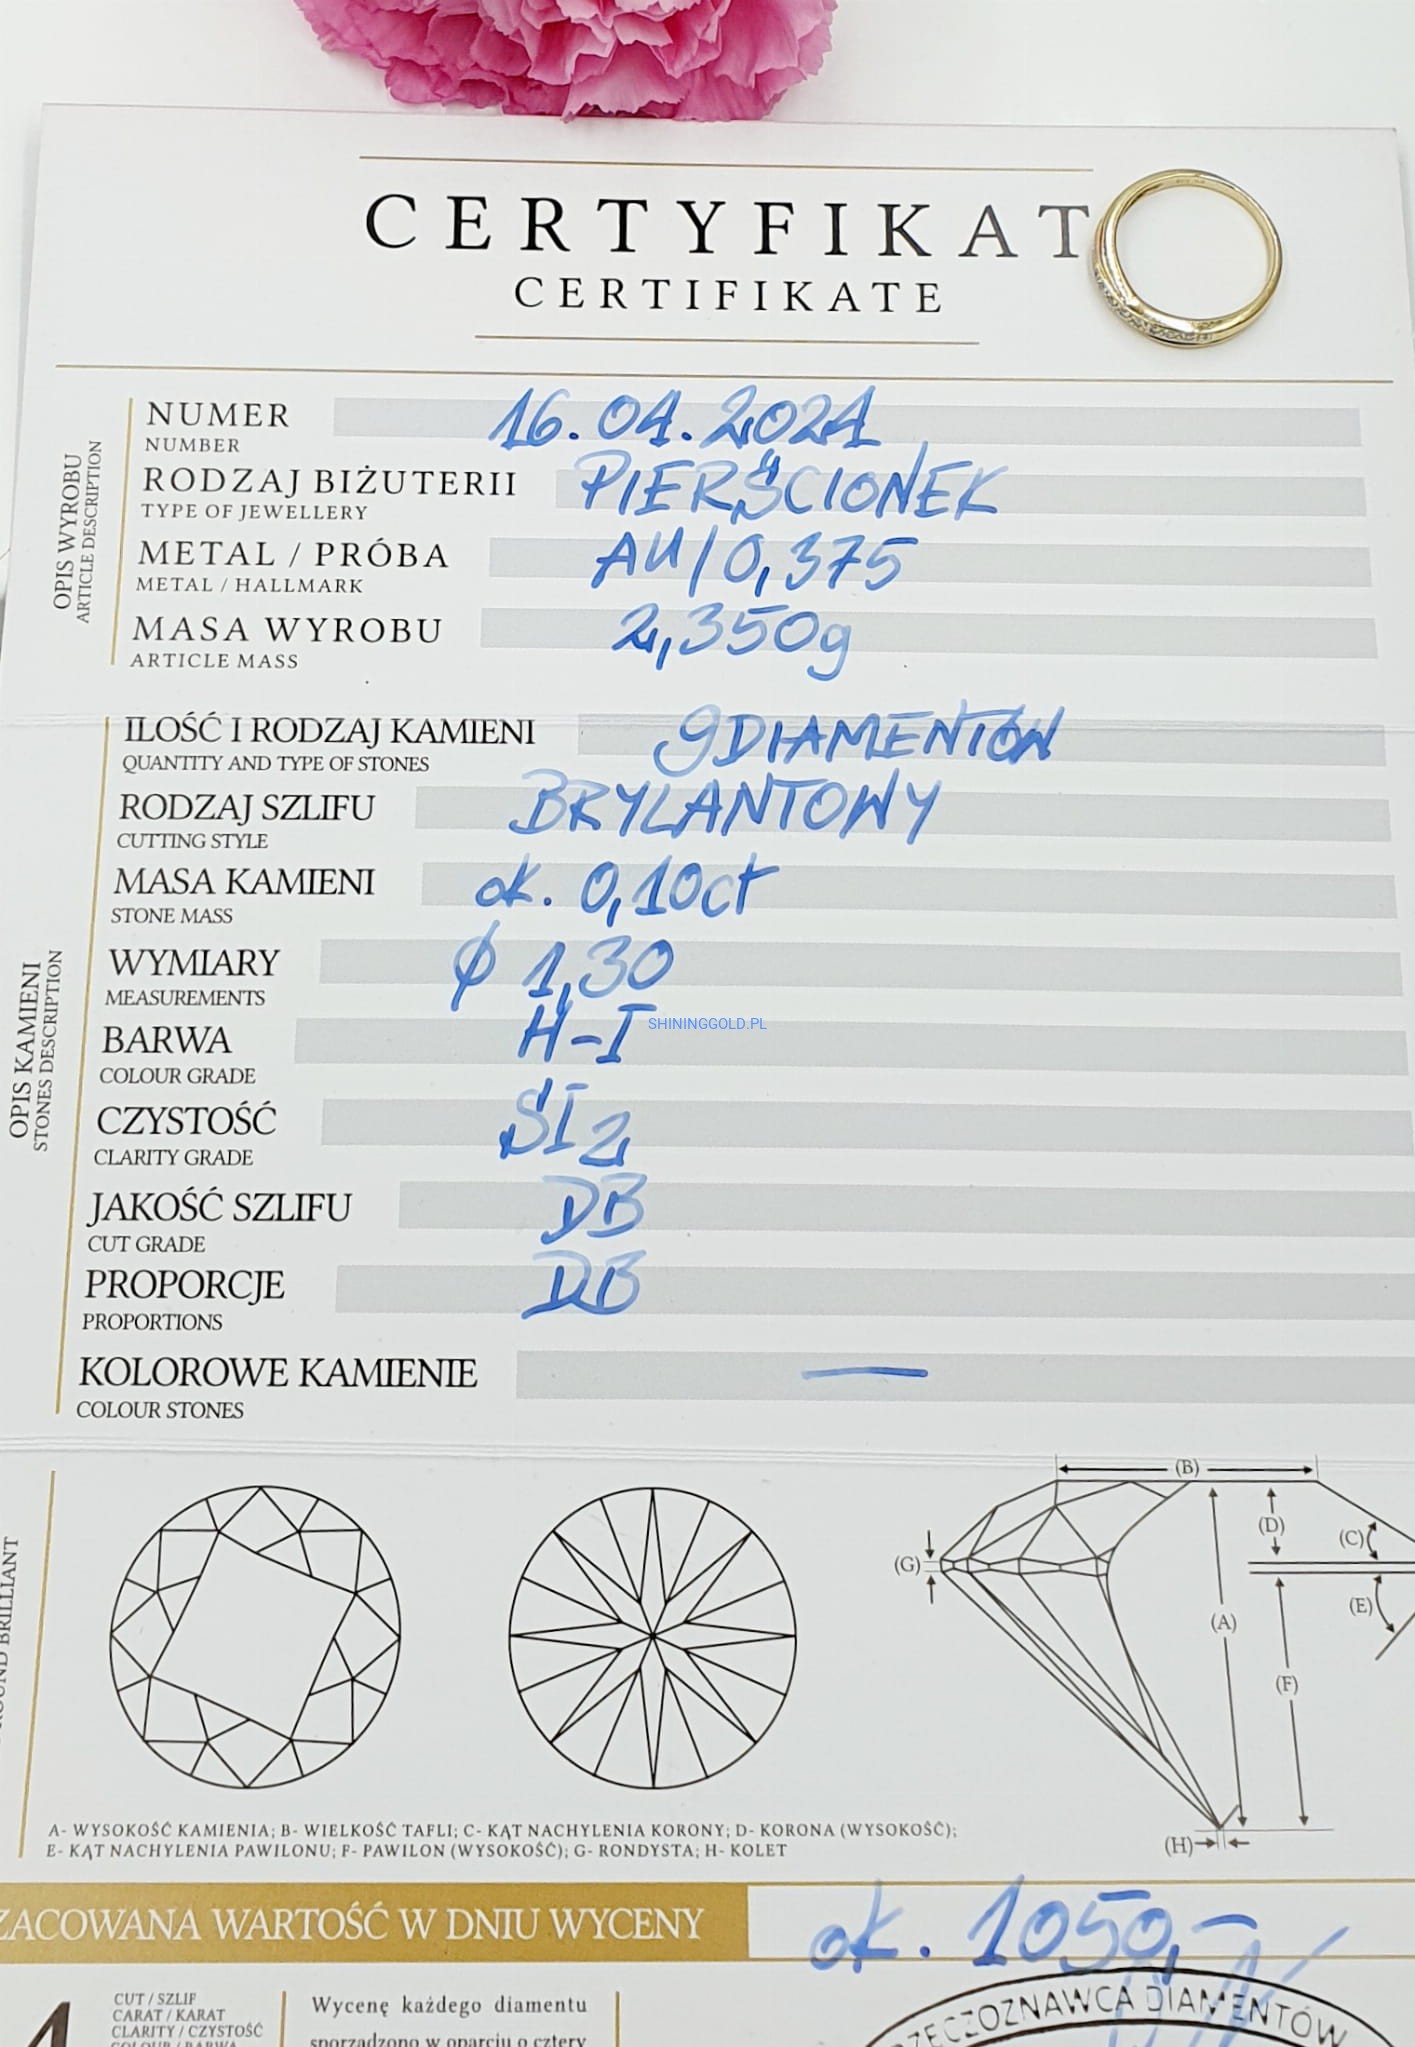 CERTYFIKAT
CERTIFIKATE
OPIS WYROBU
ARTICLE DESCRIPTION
NUMER 16.04.2024
NUMBER
RODZAJ BIŻUTERII PIERŚCIONEK
TYPE OF JEWELLERY
METAL / PRÓBA AU/0,375
METAL / HALLMARK
MASA WYROBU 2,350g
ARTICLE MASS
OPIS KAMIENI
STONES DESCRIPTION
ILOŚĆ I RODZAJ KAMIENI 9 DIAMENTÓW
QUANTITY AND TYPE OF STONES
RODZAJ SZLIFU BRYLANTOWY
CUTTING STYLE
MASA KAMIENI ok. 0,10ct
STONE MASS
WYMIARY Ø 1,30
MEASUREMENTS
BARWA H-I
SHININGGOLD.PL
COLOUR GRADE
CZYSTOŚĆ SI2
CLARITY GRADE
JAKOŚĆ SZLIFU DB
CUT GRADE
PROPORCJE DB
PROPORTIONS
KOLOROWE KAMIENIE —
COLOUR STONES
ROUND BRILLIANT
(B)
(D)
(C)
(G)
(E)
(A)
(F)
(H)
A- WYSOKOŚĆ KAMIENIA; B- WIELKOŚĆ TAFLI; C- KĄT NACHYLENIA KORONY; D- KORONA (WYSOKOŚĆ);
E- KĄT NACHYLENIA PAWILONU; F- PAWILON (WYSOKOŚĆ); G- RONDYSTA; H- KOLET
ZACOWANA WARTOŚĆ W DNIU WYCENY ok. 1050,-
4
CUT / SZLIF
CARAT / KARAT
CLARITY / CZYSTOŚĆ
COLOUR / BARWA
Wycenę każdego diamentu
sporządzono w oparciu o cztery
RZECZOZNAWCA DIAMENTÓW